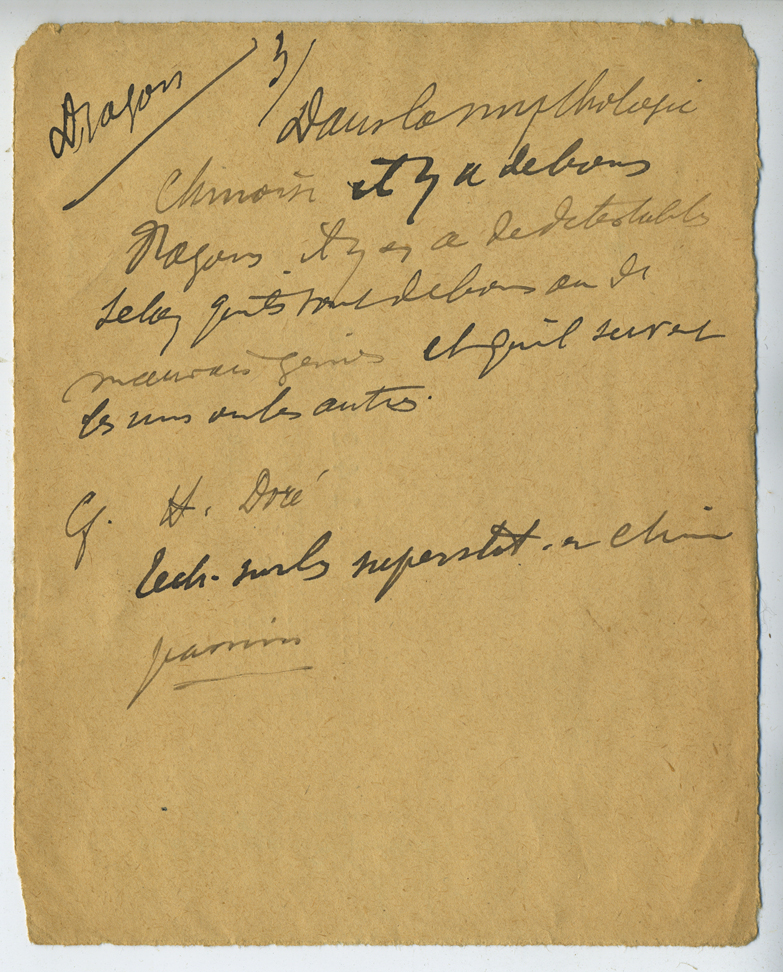 Dragons 3/
Dans la mythologie
Chinoise il y a de bons
Dragons il y en a de détestables
selon qu'ils sont de bons ou de
mauvais génies et qu'il servent
les uns ou les autres.
Cf. H. Doré
Rech. sur les superstit. en Chine
passim